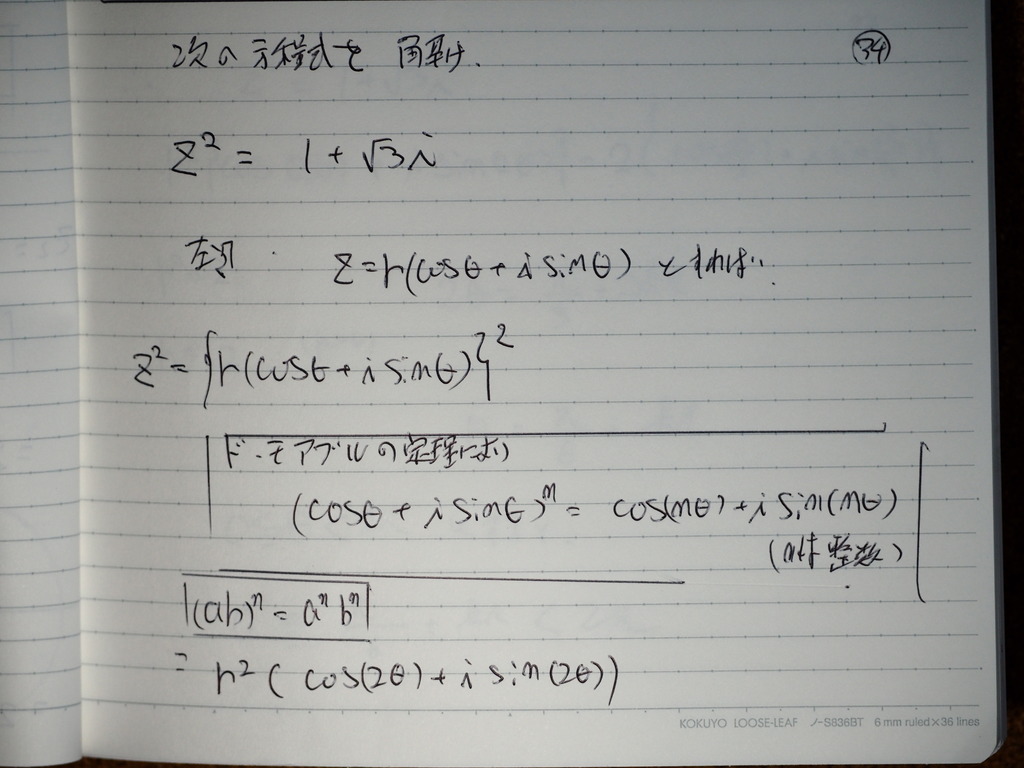 次の方程式を解け. 34
z² = 1 + √3i
左辺. z = r(cosθ + i sinθ) とすれば、
z² = {r(cosθ + i sinθ)}²
ド・モアブルの定理により
(cosθ + i sinθ)ⁿ = cos(nθ) + i sin(nθ)
(nは整数)
(ab)ⁿ = aⁿbⁿ
= r²( cos(2θ) + i sin(2θ))
KOKUYO LOOSE-LEAF ノ-S836BT 6 mm ruled×36 lines